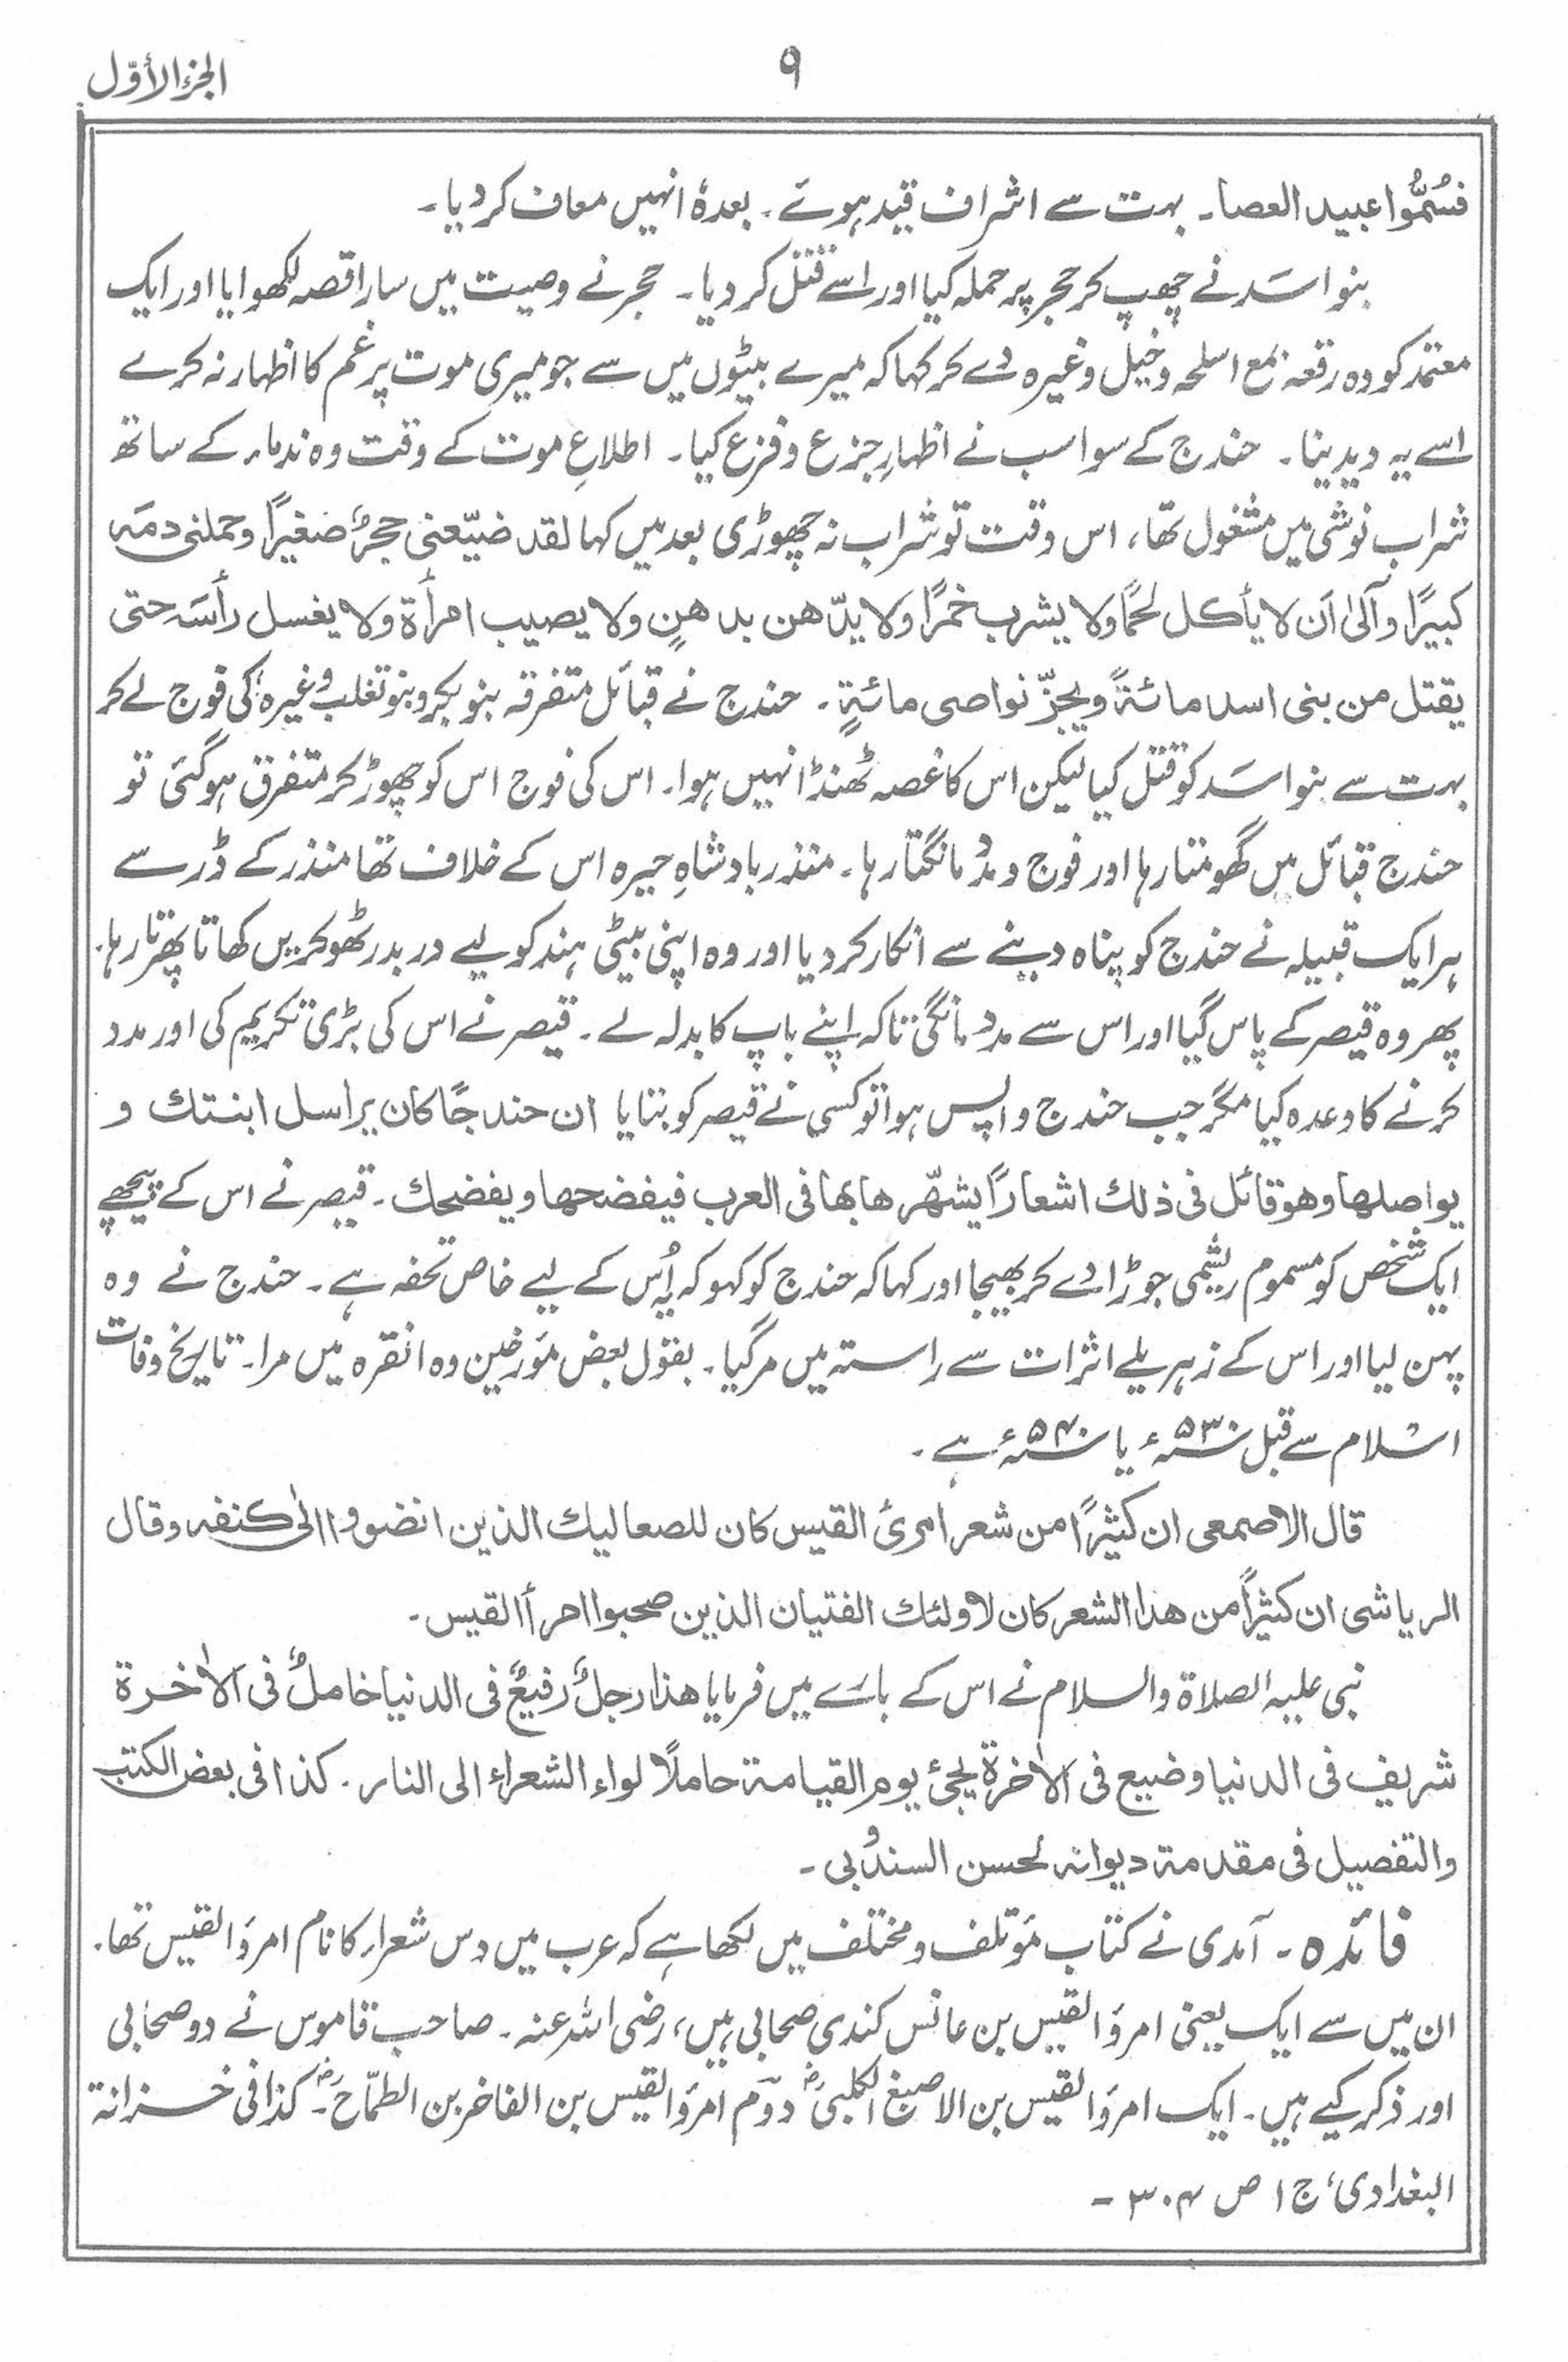 الجزء الأوّل
۹
فسُمُّوا عبید العصا۔ بہت سے اشراف قید ہوئے۔ بعدہٗ انہیں معاف کر دیا۔
بنو اسَد نے چھپ کر حجر پر حملہ کیا اور اسے قتل کر دیا۔ حجر نے وصیت میں سارا قصہ لکھوایا اور ایک
معتمد کو وہ رقعہ بمع اسلحہ و خیل وغیرہ دے کر کہا کہ میرے بیٹوں میں سے جو میری موت پر غم کا اظہار نہ کرے
اسے یہ دیدینا۔ حندج کے سوا سب نے اظہارِ جزع و فزع کیا۔ اطلاعِ موت کے وقت وہ ندماء کے ساتھ
شراب نوشی میں مشغول تھا، اس وقت تو شراب نہ چھوڑی بعد میں کہا لقد ضیّعنی حجرٌ صغیرًا وحملنی دمَہ
کبیرًا وآلیٰ اَن لا یأکل لحمًا ولا یشرب خمرًا ولا یدّھن بدھنٍ ولا یصیب امرأۃ ولا یغسل رأسَہ حتی
یقتل من بنی اسد مائۃً ویجزّ نواصی مائۃٍ۔ حندج نے قبائل متفرقہ بنو بکر و بنو تغلب وغیرہ کی فوج لے کر
بہت سے بنو اسَد کو قتل کیا لیکن اس کا غصہ ٹھنڈا نہیں ہوا۔ اس کی فوج اس کو چھوڑ کر متفرق ہو گئی تو
حندج قبائل میں گھومتا رہا اور فوج و مدد مانگتا رہا۔ منذر بادشاہِ حیرہ اس کے خلاف تھا منذر کے ڈر سے
ہر ایک قبیلہ نے حندج کو پناہ دینے سے انکار کر دیا اور وہ اپنی بیٹی ہند کو لیے در بدر ٹھوکریں کھاتا پھرتا رہا۔
پھر وہ قیصر کے پاس گیا اور اس سے مدد مانگی تاکہ اپنے باپ کا بدلہ لے۔ قیصر نے اس کی بڑی تکریم کی اور مدد
کرنے کا وعدہ کیا مگر جب حندج واپس ہوا تو کسی نے قیصر کو بتایا ان حندجًا کان یراسل ابنتك و
یواصلھا وھو قائل فی ذلك اشعارًا یشھّرھا بھا فی العرب فیفضحھا ویفضحك۔ قیصر نے اس کے پیچھے
ایک شخص کو مسموم ریشمی جوڑا دے کر بھیجا اور کہا کہ حندج کو کہو کہ یہ اُس کے لیے خاص تحفہ ہے۔ حندج نے وہ
پہن لیا اور اس کے زہریلے اثرات سے راستہ میں مر گیا۔ بقول بعض مؤرخین وہ انقرہ میں مرا۔ تاریخ وفات
اسلام سے قبل ۵۳۰ء یا ۵۴۰ء ہے۔
قال الاصمعی ان کثیرًا من شعر امرئ القیس کان للصعالیك الذین انضووا الیٰ کنفہ وقال
الریاشی ان کثیرًا من ھذا الشعر کان لاولئك الفتیان الذین صحبوا امرأ القیس۔
نبی علیہ الصلاۃ والسلام نے اس کے بارے میں فرمایا ھذا رجلٌ رفیعٌ فی الدنیا خاملٌ فی الاٰخرۃ
شریف فی الدنیا وضیع فی الاٰخرۃ یجئ یوم القیامۃ حاملاً لواء الشعراء الی النار۔ کذا فی بعض الکتب
والتفصیل فی مقدمۃ دیوانہ لحسن السندُوبی۔
فائدہ۔ آمدی نے کتاب مؤتلف و مختلف میں لکھا ہے کہ عرب میں دس شعراء کا نام امرؤ القیس تھا۔
ان میں سے ایک یعنی امرؤ القیس بن عانس کندی صحابی ہیں، رضی اللہ عنہ۔ صاحب قاموس نے دو صحابی
اور ذکر کیے ہیں۔ ایک امرؤ القیس بن الاصبغ الکلبیؓ دوّم امرؤ القیس بن الفاخر بن الطمّاحؓ۔ کذا فی خزانۃ
البغدادی، ج ۱ ص ۳۰۴۔